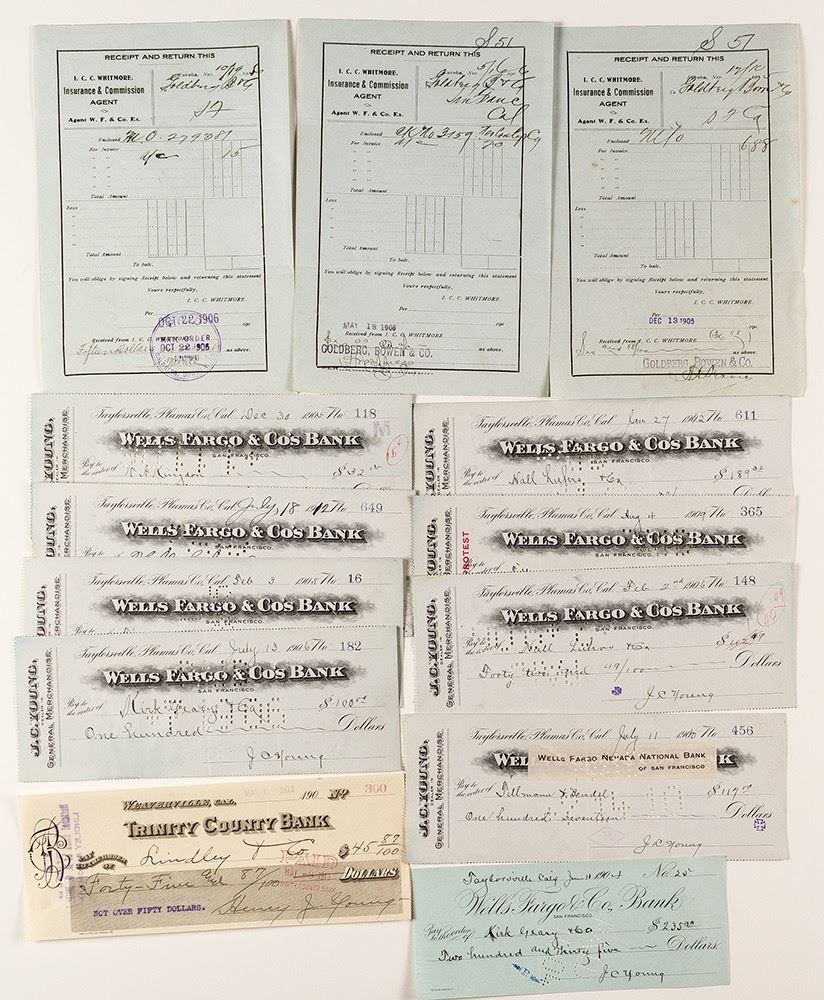 RECEIPT AND RETURN THIS
I. C. C. WHITMORE.
Insurance & Commission
AGENT
Agent W. F. & Co. Ex.
Eureka, Nov. 10/19
Goldberg B & G
S F
Enclosed M.O. 279381
For Invoice 15
Total Amount
Less
Total Amount
To balc.
You will oblige by signing Receipt below and returning this statement
Yours respectfully,
I. C. C. WHITMORE.
Per
OCT 22 1906
190
Received from I. C. C. WHITMORE
MONEY ORDER
OCT 22 1906
Fifteen Dollars
as above.
S 51
RECEIPT AND RETURN THIS
I. C. C. WHITMORE.
Insurance & Commission
AGENT
Agent W. F. & Co. Ex.
Eureka, Nov. 5/16 6
Goldberg B & G
San Franc
Cal
Enclosed Ck No 3159
For Invoice 20
Total Amount
Less
Total Amount
To balc.
You will oblige by signing Receipt below and returning this statement
Yours respectfully,
I. C. C. WHITMORE.
Per
MAY 18 1906
190
Received from I. C. C. WHITMORE
GOLDBERG, BOWEN & CO.
as above.
S 51
RECEIPT AND RETURN THIS
I. C. C. WHITMORE.
Insurance & Commission
AGENT
Agent W. F. & Co. Ex.
Eureka, Nov. 12/12
To Goldberg Bowen & Co
S F
Enclosed M/O
For Invoice 688
Total Amount
Less
Total Amount
To balc.
You will oblige by signing Receipt below and returning this statement
Yours respectfully,
I. C. C. WHITMORE.
Per
DEC 13 1905
190
Received from I. C. C. WHITMORE
Six and 88/100
as above.
GOLDBERG, BOWEN & CO.
YOUNG,
DEALER IN
MERCHANDISE.
Taylorsville, Plumas Co, Cal Dec 30 1905 No 118
M
WELLS FARGO & CO'S BANK
SAN FRANCISCO.
Pay to the order of
$32
YOUNG,
DEALER IN
MERCHANDISE.
Taylorsville, Plumas Co, Cal Jan 27 1912 No 611
WELLS FARGO & CO'S BANK
SAN FRANCISCO.
Pay to the order of Hall Luhrs & Co
$189 32
YOUNG,
MERCHANDISE.
Taylorsville, Plumas Co, Cal July 18 1912 No 649
WELLS FARGO & CO'S BANK
SAN FRANCISCO.
Pay to
YOUNG,
MERCHANDISE.
Taylorsville, Plumas Co, Cal Aug 4 1909 No 365
PROTEST
WELLS FARGO & CO'S BANK
SAN FRANCISCO.
YOUNG,
DEALER IN
GENERAL MERCHANDISE.
Taylorsville, Plumas Co, Cal Feb 3 1905 No 16
WELLS FARGO & CO'S BANK
SAN FRANCISCO.
Pay to
J.C. YOUNG,
DEALER IN
GENERAL MERCHANDISE.
Taylorsville, Plumas Co, Cal Feb 2nd 1906 No 148
WELLS FARGO & CO'S BANK
SAN FRANCISCO.
Pay to the order of Hall Luhrs & Co
$42 49
Forty two and 49/100 Dollars
J C Young
J.C. YOUNG,
DEALER IN
GENERAL MERCHANDISE.
Taylorsville, Plumas Co, Cal July 13 1906 No 182
WELLS FARGO & CO'S BANK
SAN FRANCISCO.
Pay to the order of Kirk Geary & Co
$100 00
One hundred Dollars
J C Young
J.C. YOUNG,
DEALER IN
GENERAL MERCHANDISE.
Taylorsville, Plumas Co, Cal July 11 1910 No 456
WEL
WELLS FARGO NEVADA NATIONAL BANK
OF SAN FRANCISCO
K
Pay to the order of Tillmann & Bendel
$117 00
One hundred Seventeen Dollars
J C Young
WEAVERVILLE, CAL. 190 No 300
TRINITY COUNTY BANK
PAY TO THE ORDER OF Lindley & Co
$45 87/100
PAID
TRINITY COUNTY BANK
Forty-Five and 87/100 DOLLARS
NOT OVER FIFTY DOLLARS.
Henry J Young
Taylorsville Caly Jan 11 1904 No. 25
Wells Fargo & Co. Bank
SAN FRANCISCO.
Pay to the order of Kirk Geary & Co
$235 00
Two hundred and thirty five Dollars.
J C Young